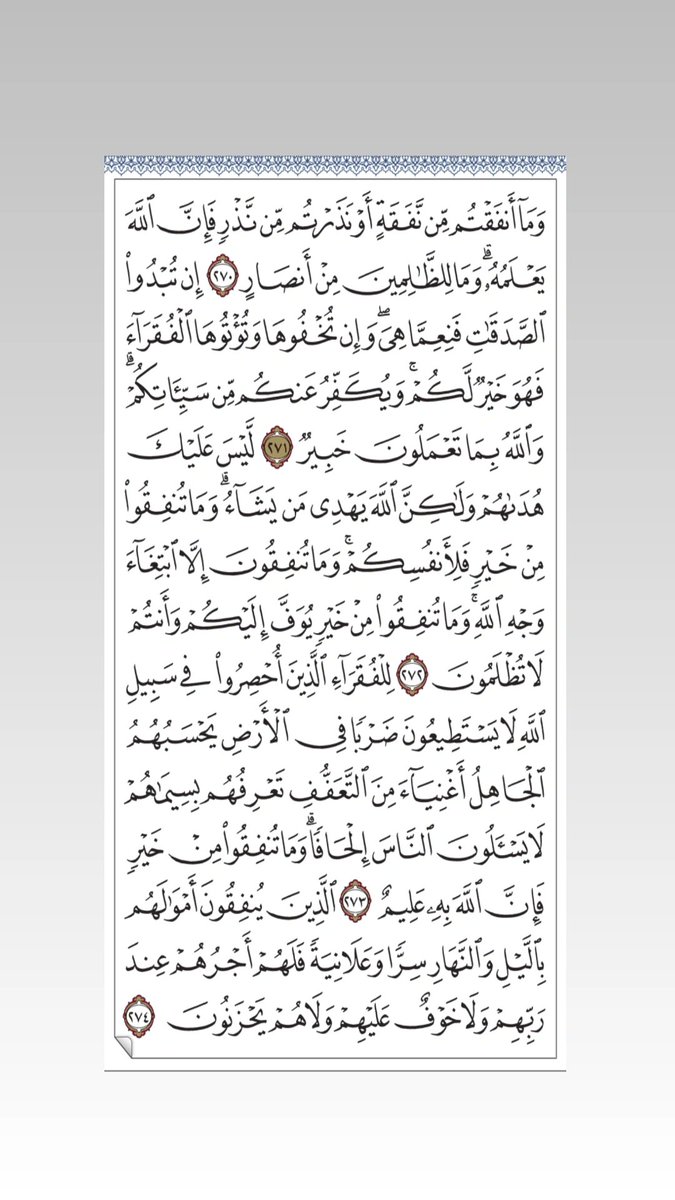 وَمَآ أَنفَقْتُم مِّن نَّفَقَةٍ أَوْ نَذَرْتُم مِّن نَّذْرٍ فَإِنَّ ٱللَّهَ
يَعْلَمُهُۥۗ وَمَا لِلظَّٰلِمِينَ مِنْ أَنصَارٍ ٢٧٠ إِن تُبْدُوا۟
ٱلصَّدَقَٰتِ فَنِعِمَّا هِىَۖ وَإِن تُخْفُوهَا وَتُؤْتُوهَا ٱلْفُقَرَآءَ
فَهُوَ خَيْرٌ لَّكُمْۚ وَيُكَفِّرُ عَنكُم مِّن سَيِّـَٔاتِكُمْۗ
وَٱللَّهُ بِمَا تَعْمَلُونَ خَبِيرٌ ٢٧١ لَّيْسَ عَلَيْكَ
هُدَىٰهُمْ وَلَٰكِنَّ ٱللَّهَ يَهْدِى مَن يَشَآءُۗ وَمَا تُنفِقُوا۟
مِنْ خَيْرٍ فَلِأَنفُسِكُمْۚ وَمَا تُنفِقُونَ إِلَّا ٱبْتِغَآءَ
وَجْهِ ٱللَّهِۚ وَمَا تُنفِقُوا۟ مِنْ خَيْرٍ يُوَفَّ إِلَيْكُمْ وَأَنتُمْ
لَا تُظْلَمُونَ ٢٧٢ لِلْفُقَرَآءِ ٱلَّذِينَ أُحْصِرُوا۟ فِى سَبِيلِ
ٱللَّهِ لَا يَسْتَطِيعُونَ ضَرْبًا فِى ٱلْأَرْضِ يَحْسَبُهُمُ
ٱلْجَاهِلُ أَغْنِيَآءَ مِنَ ٱلتَّعَفُّفِ تَعْرِفُهُم بِسِيمَٰهُمْ
لَا يَسْـَٔلُونَ ٱلنَّاسَ إِلْحَافًاۗ وَمَا تُنفِقُوا۟ مِنْ خَيْرٍ
فَإِنَّ ٱللَّهَ بِهِۦ عَلِيمٌ ٢٧٣ ٱلَّذِينَ يُنفِقُونَ أَمْوَٰلَهُم
بِٱلَّيْلِ وَٱلنَّهَارِ سِرًّا وَعَلَانِيَةً فَلَهُمْ أَجْرُهُمْ عِندَ
رَبِّهِمْ وَلَا خَوْفٌ عَلَيْهِمْ وَلَا هُمْ يَحْزَنُونَ ٢٧٤